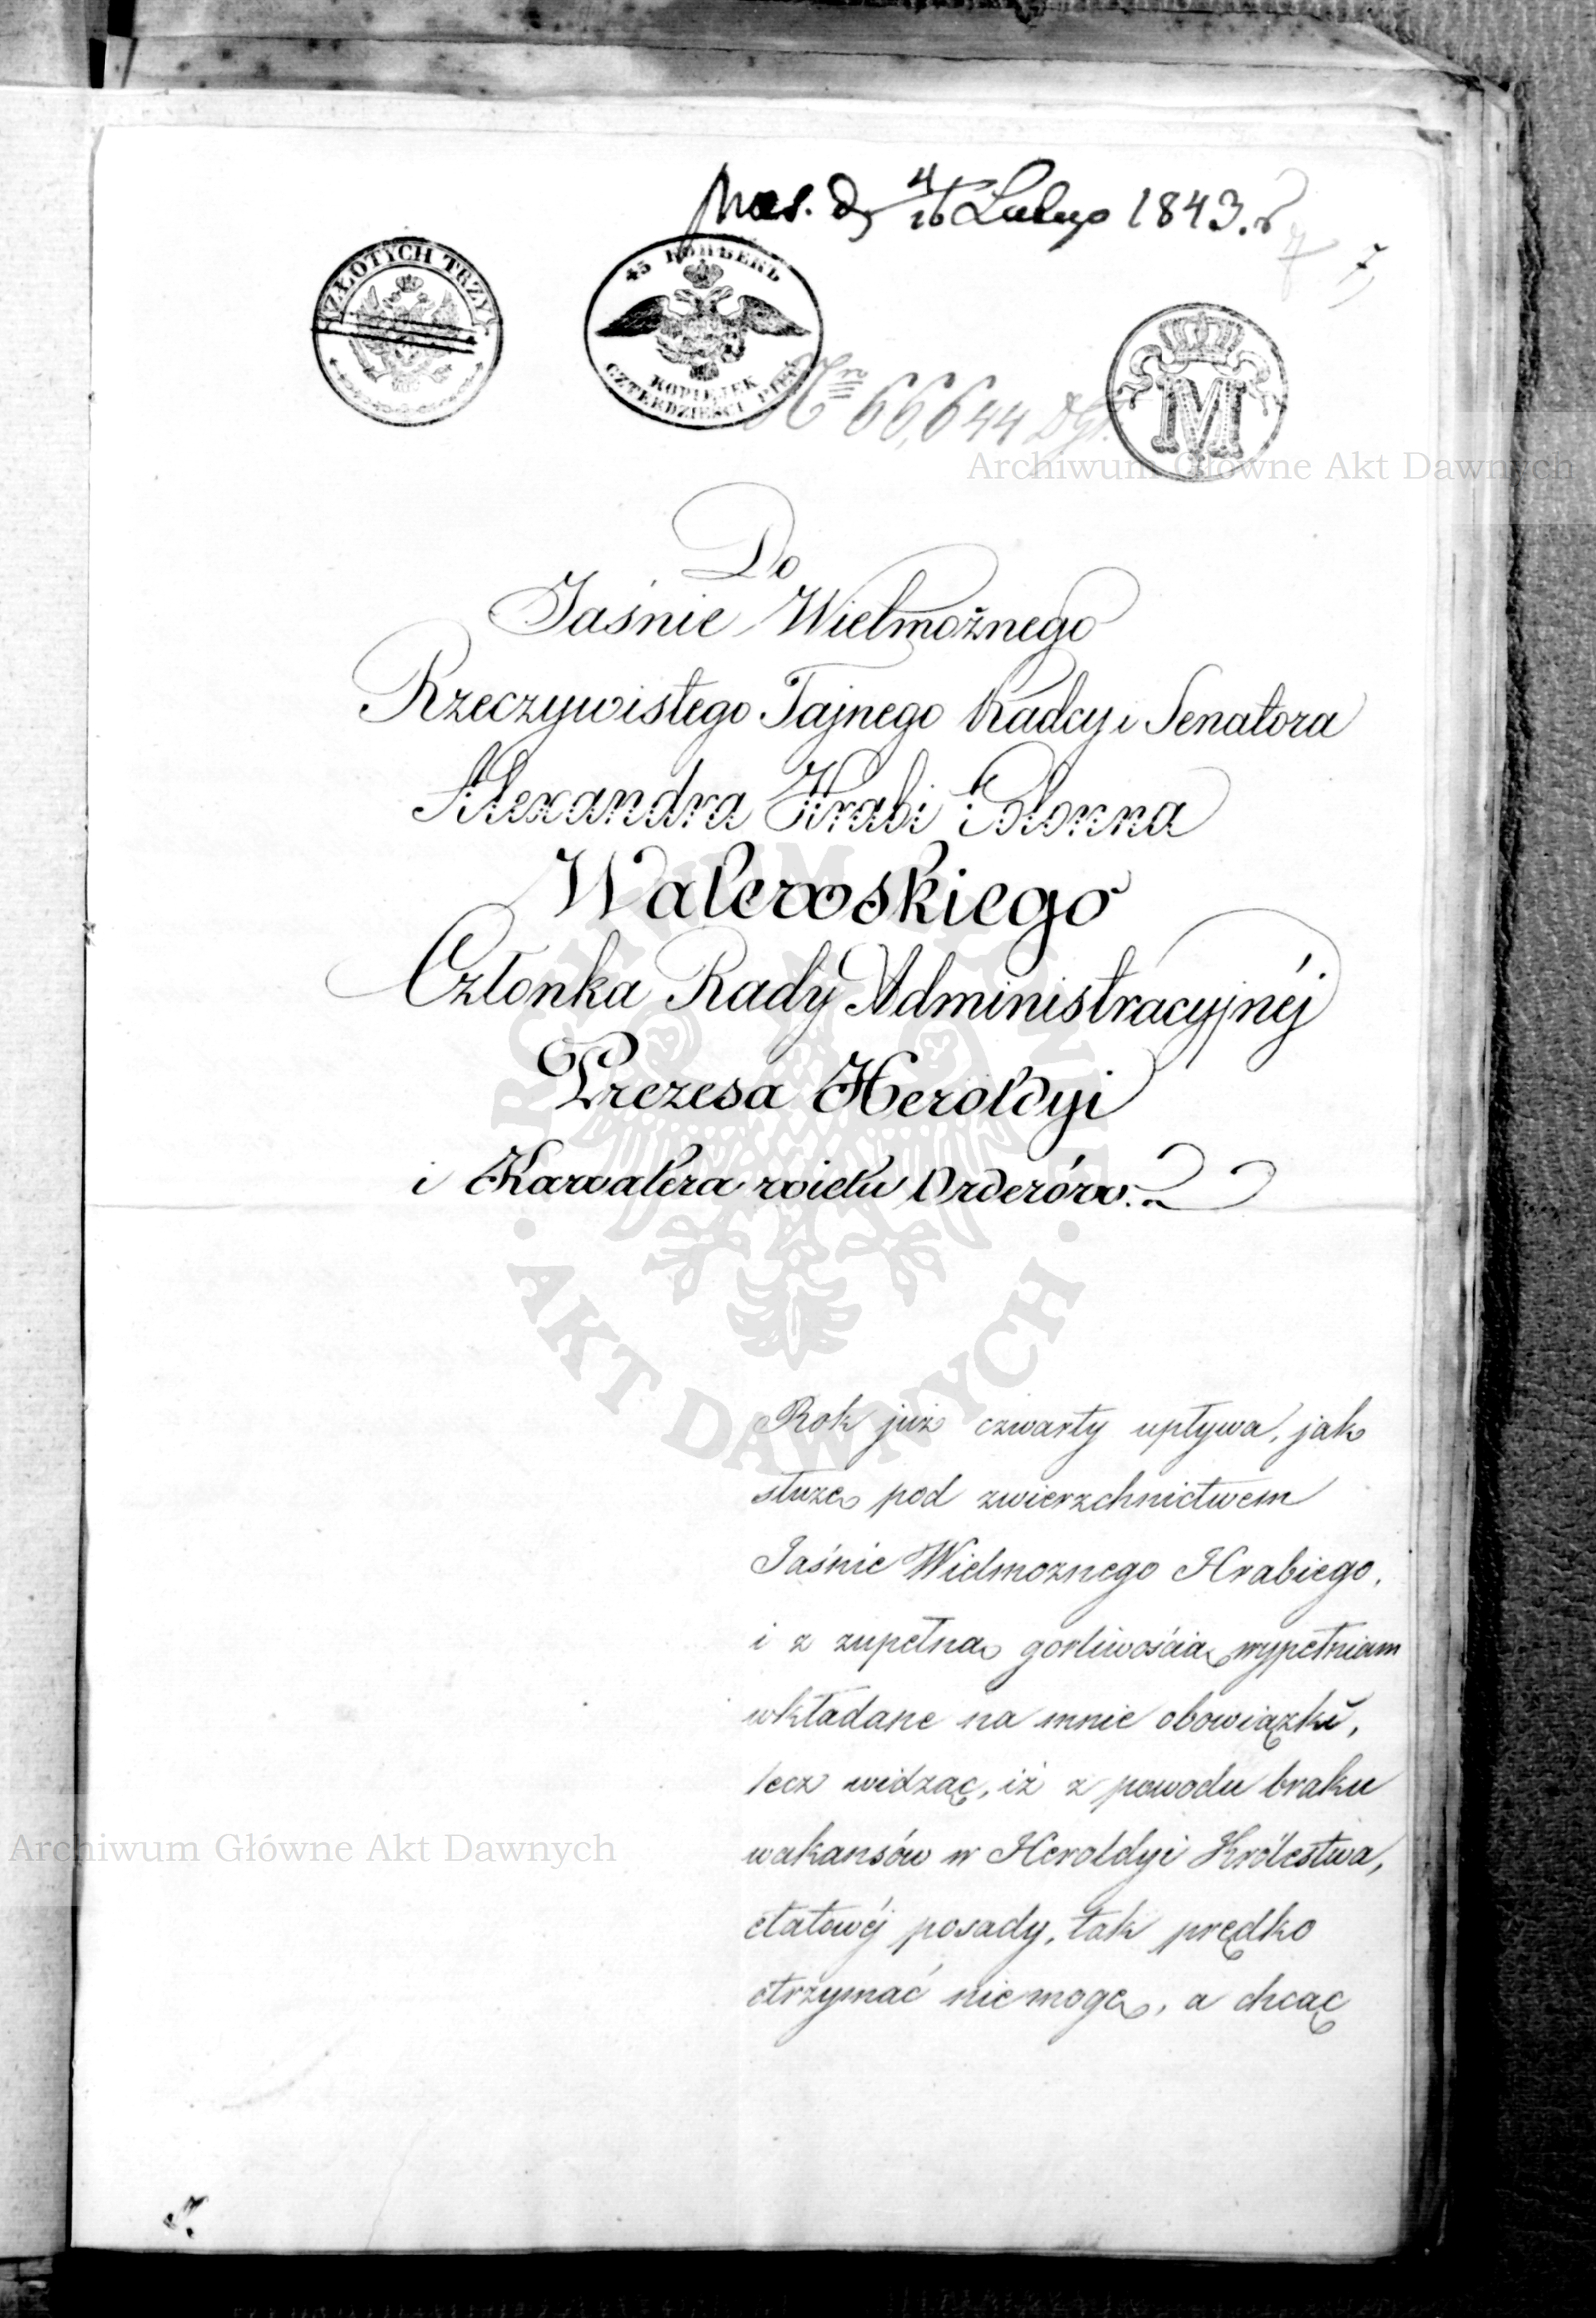 pres. d. 4/16 Lutego 1843. r
7 7
ZŁOTYCH TRZY
45 КОПѢЕКЪ
KOPIEJEK
CZTERDZIEŚCI PIĘĆ
M
No 66,644
Archiwum Główne Akt Dawnych
Do
Jaśnie Wielmożnego
Rzeczywistego Tajnego Radcy i Senatora
Alexandra Hrabi Colonna
Walewskiego
Członka Rady Administracyjnéj
Prezesa Heroldyi
i Kawalera wielu Orderów.
ARCHIWUM GŁÓWNE
AKT DAWNYCH
Rok już czwarty upływa, jak
służę pod zwierzchnictwem
Jaśnie Wielmożnego Hrabiego,
i z zupełną gorliwością wypełniam
wkładane na mnie obowiązki,
lecz widząc, iż z powodu braku
wakansów w Heroldyi Królestwa,
etatowéj posady, tak prędko
otrzymać niemogę, a chcąc
Archiwum Główne Akt Dawnych